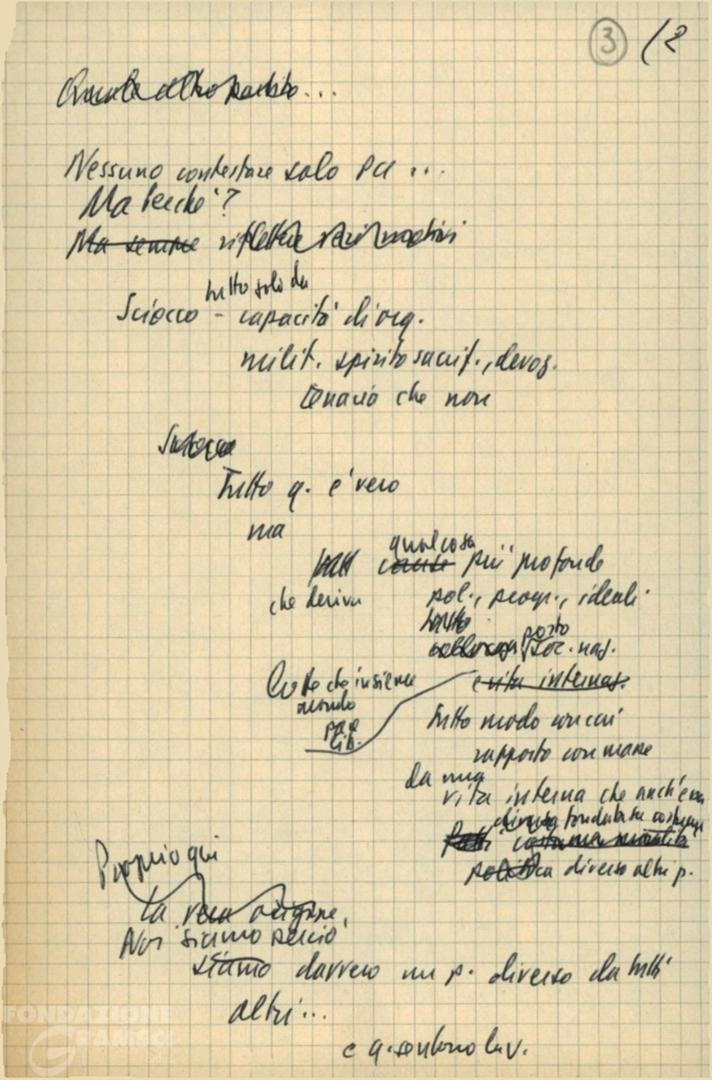 3 /2
Quale altro partito...
Nessuno contestare solo PCI...
Ma perché?
Ma sempre riflettere
tutto solo da
Sciocco - capacità di org.
milit. spirito sacrif., devoz.
che non
Sciocco
Tutto q. è vero
ma
qualcosa
più profondo
che deriva pol., progr., ideali
posto
soc. naz.
Lotte che insieme e vita internaz.
mondo
pace
lib.
tutto modo con cui
rapporto con masse
da una
vita interna che anch'essa
diversa fondata su
politica diverso altri p.
Proprio qui
la vera origine.
Noi siamo perciò
siamo davvero un p. diverso da tutti
altri...
e q. sentono lav.
FONDAZIONE
GRAMSCI